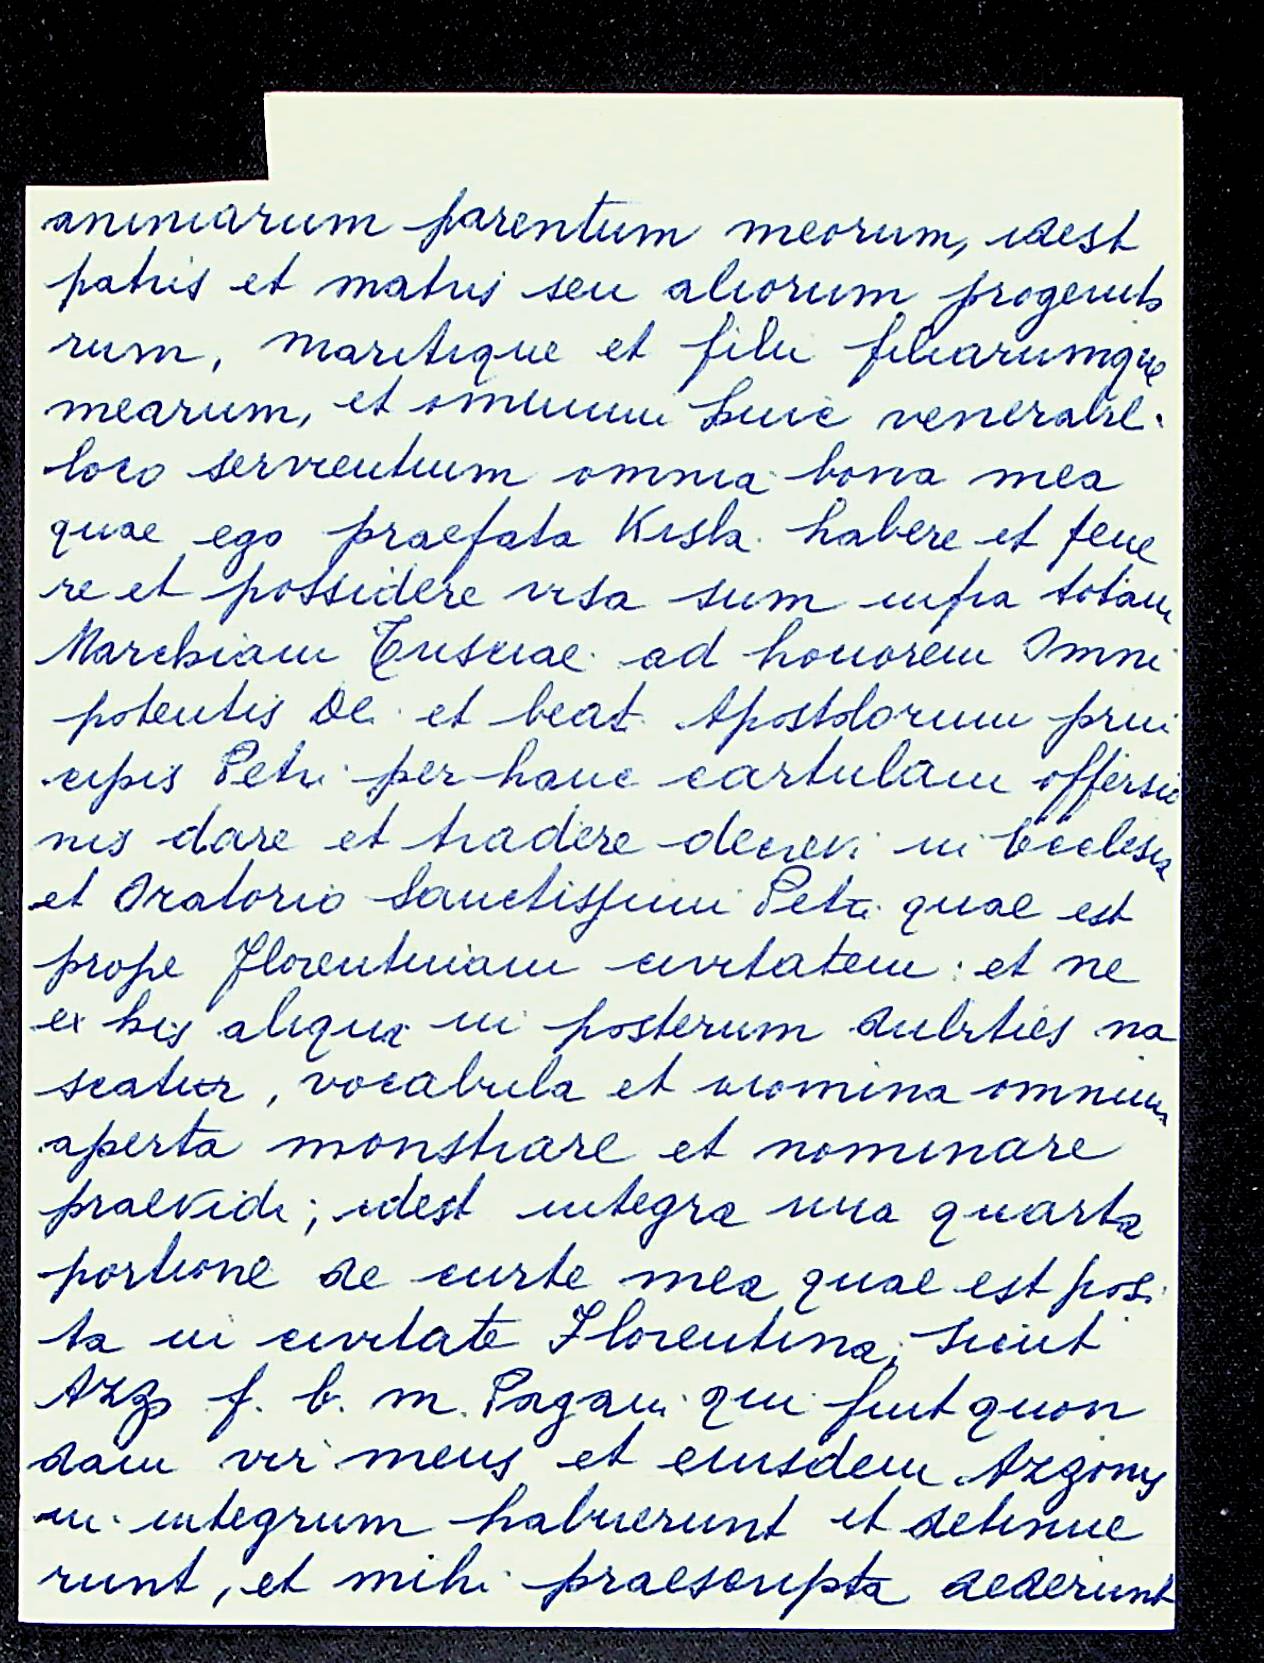 animarum parentum meorum, idest
patris et matris seu aliorum progenito
rum, maritique et filii filiarumque
mearum, et omnium huic venerabili
loco servientium omnia bona mea
quae ego praefata Kisla habere et tene
re et possidere visa sum infra totam
Marchiam Tusciae ad honorem Omni
potentis Dei et beati Apostolorum prin
cipis Petri per hanc cartulam offersio
nis dare et tradere decrevi in Ecclesia
et Oratorio Sanctissimi Petri quae est
prope Florentiniam civitatem: et ne
ex his aliqua in posterum dubities na
scatur, vocabula et nomina omnium
aperta monstrare et nominare
praevidi; idest integra una quarta
portione de curte mea quae est posi
ta in civitate Florentina, sicut
Azzo f. b. m. Pagani qui fuit quon
dam vir meus et eiusdem Azzonis
in integrum habuerunt et detinue
runt, et mihi praescripta dederunt